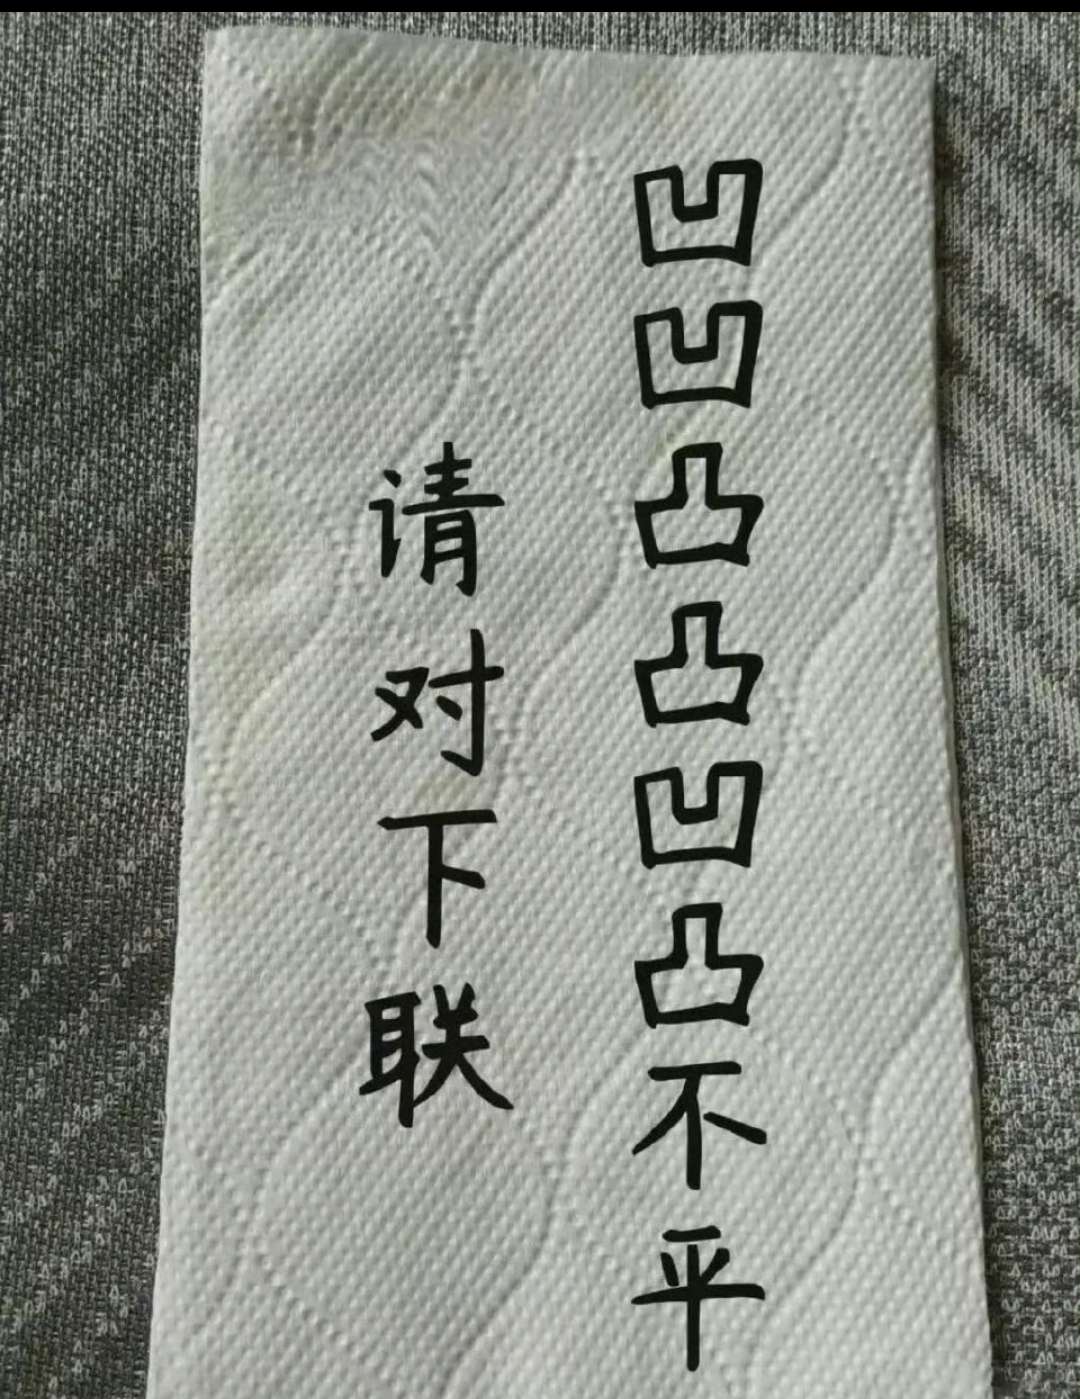 凹凹凸凸凹凸不平
请对下联